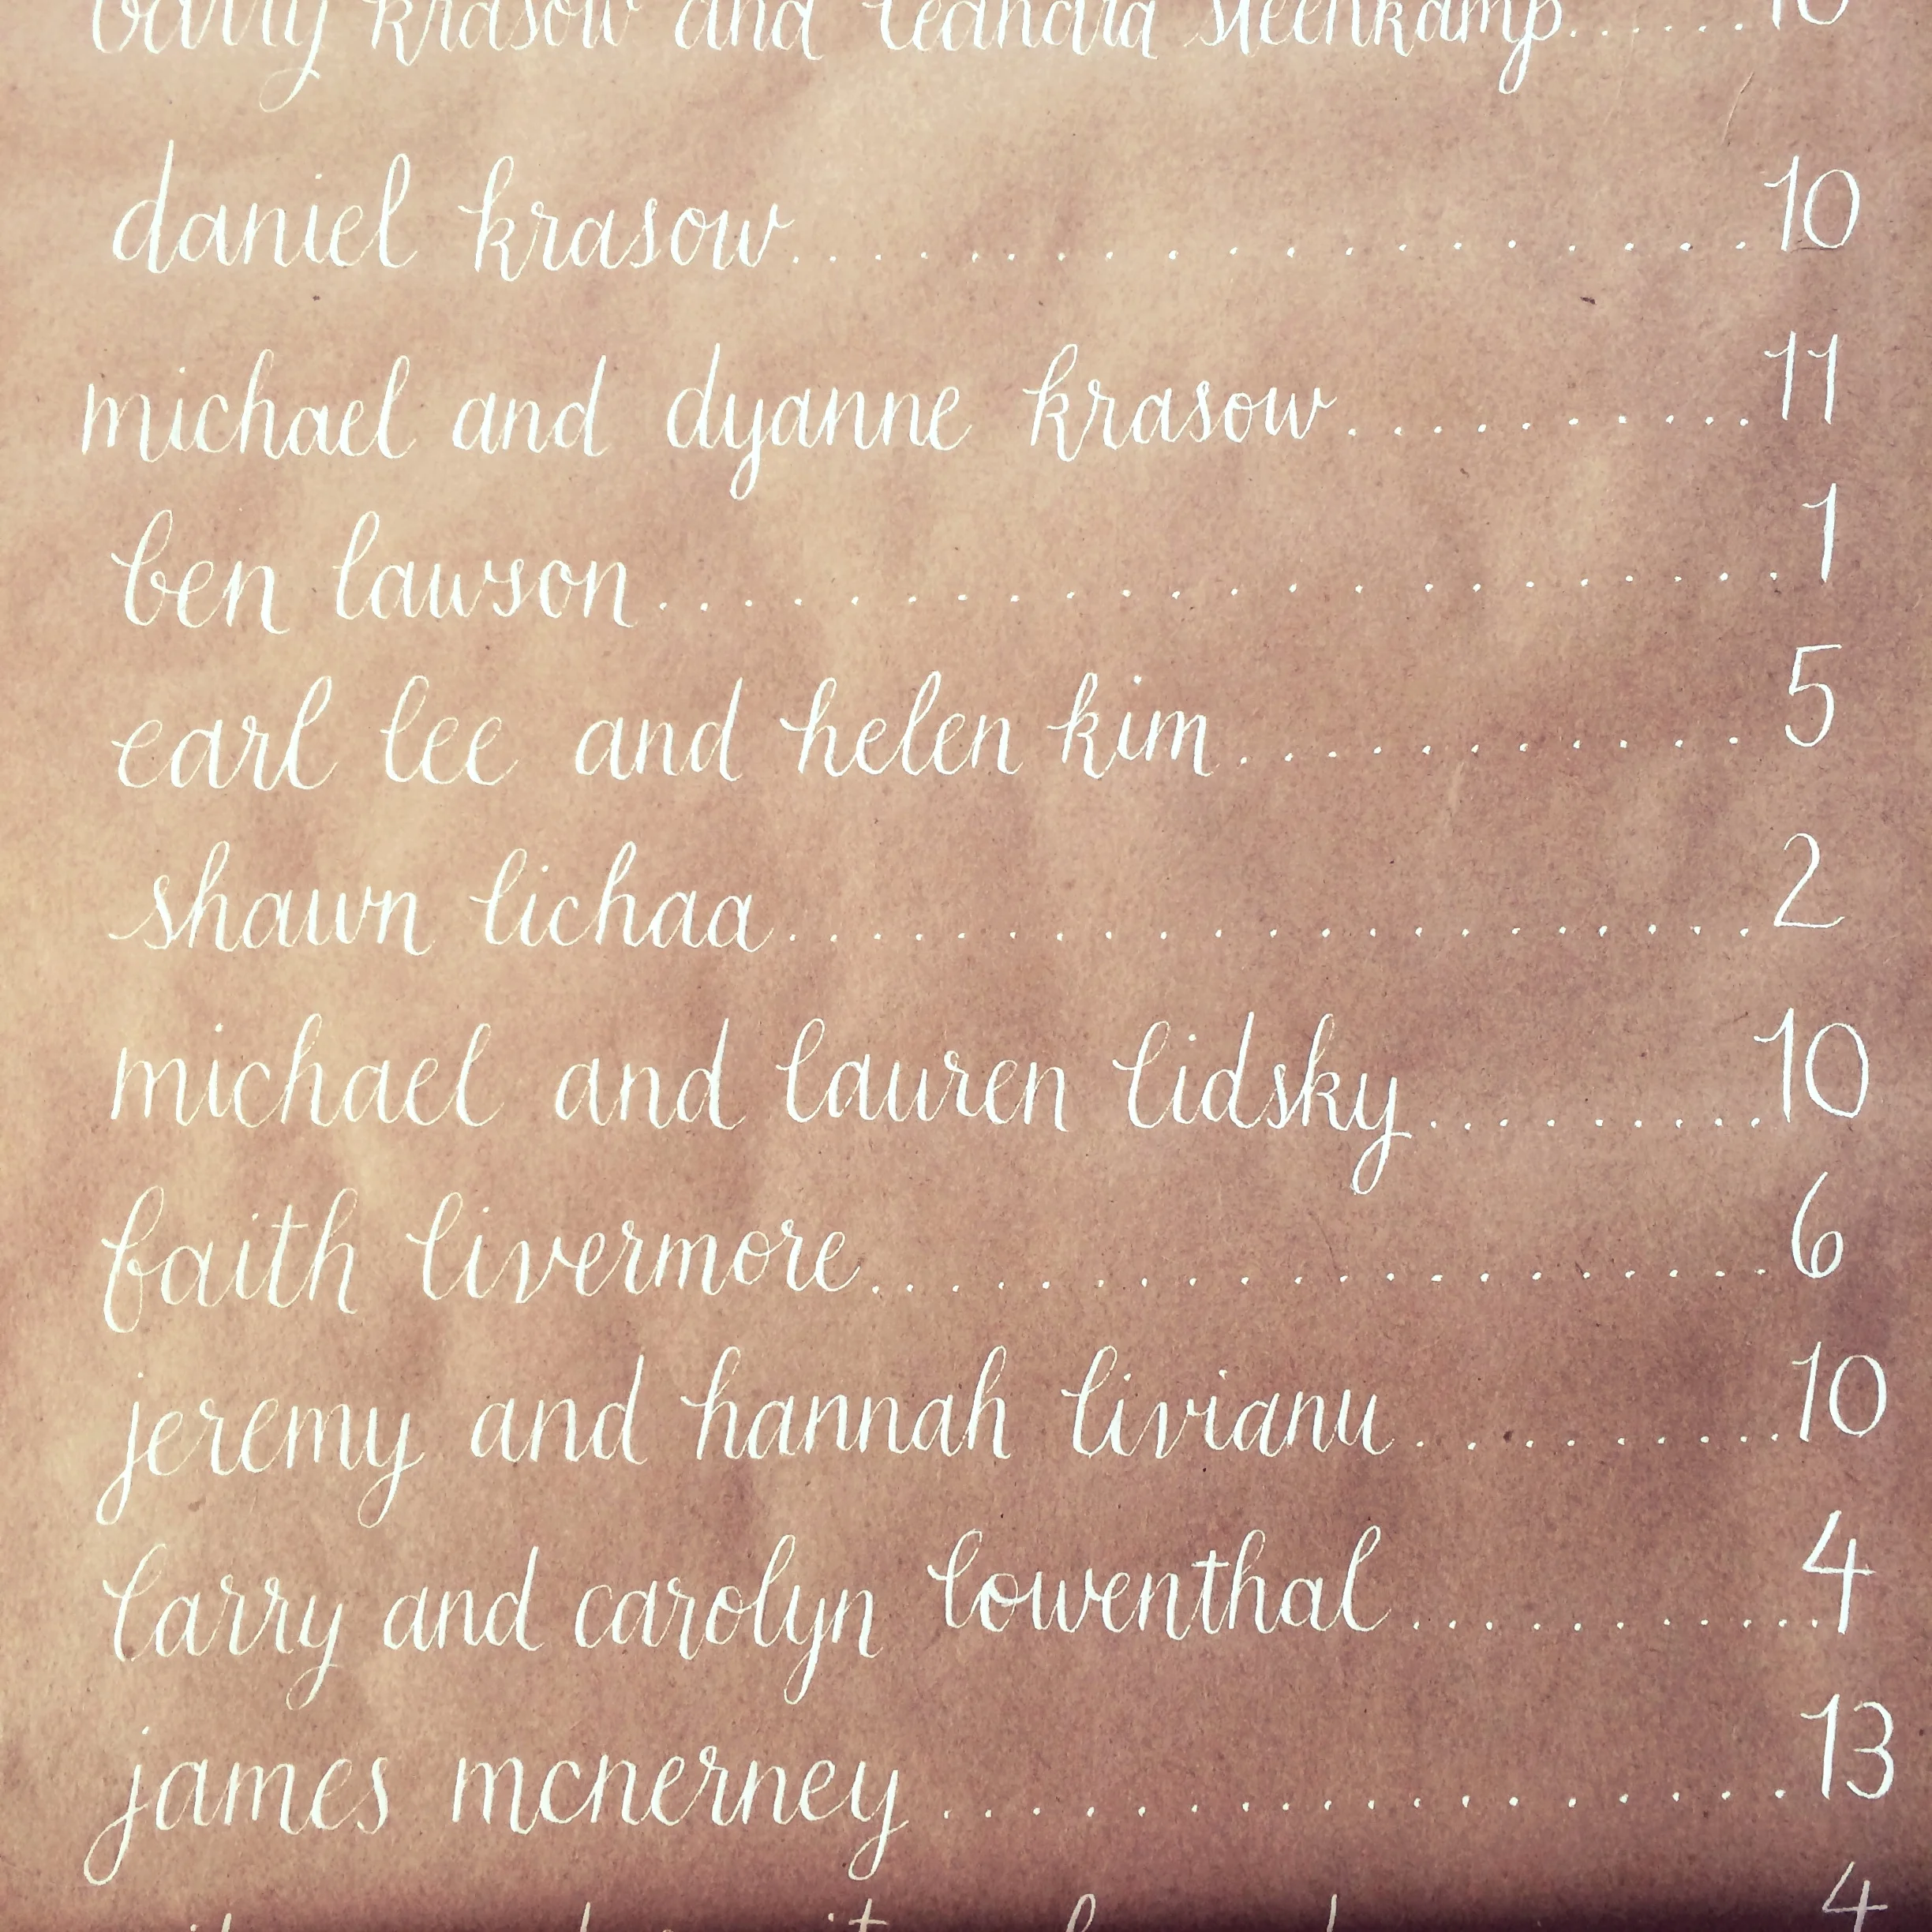 barry krasow and leandra steenkamp......10
daniel krasow....................10
michael and dyanne krasow...........11
ben lawson....................1
earl lee and helen kim.............5
shawn lichaa....................2
michael and lauren lidsky..........10
faith livermore..................6
jeremy and hannah livianu..........10
larry and carolyn lowenthal...........4
james mcnerney..................13
4